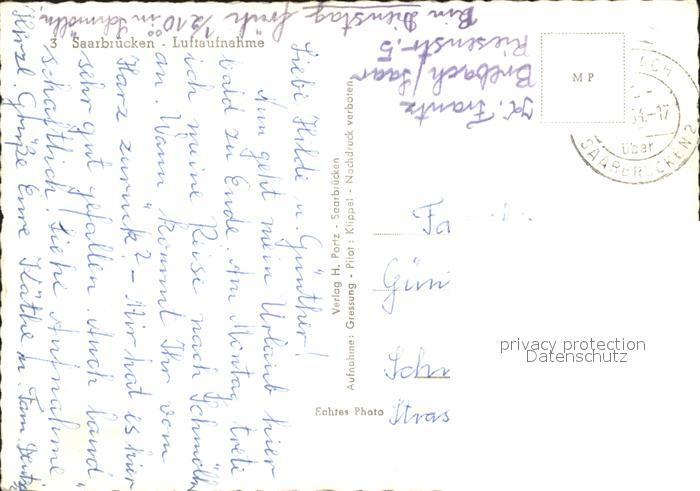 Bin Dienstag früh ½ 10 00 in Schmölln,
3 Saarbrücken · Luftaufnahme
Liebe Hilde u. Günther!
Nun geht mein Urlaub hier
bald zu Ende. Am Montag trete
ich meine Reise nach Schmölln
an. Wann kommt Ihr vom
Harz zurück? - Mir hat es hier
sehr gut gefallen. Auch land
schaftlich. Siehe Aufnahme
Herzl. Grüße Eure Käthe u. Fam.
Verlag H. Portz, Saarbrücken
Aufnahme: Gressung - Pilot: Klippel - Nachdruck verboten
Echtes Photo
Frantz
Brebach / Saar
Riesenstr. 5
MP
ACH
-17
über
SAARBRÜCKEN 2
Fa
Gün
Sch
Stras
privacy protection
Datenschutz